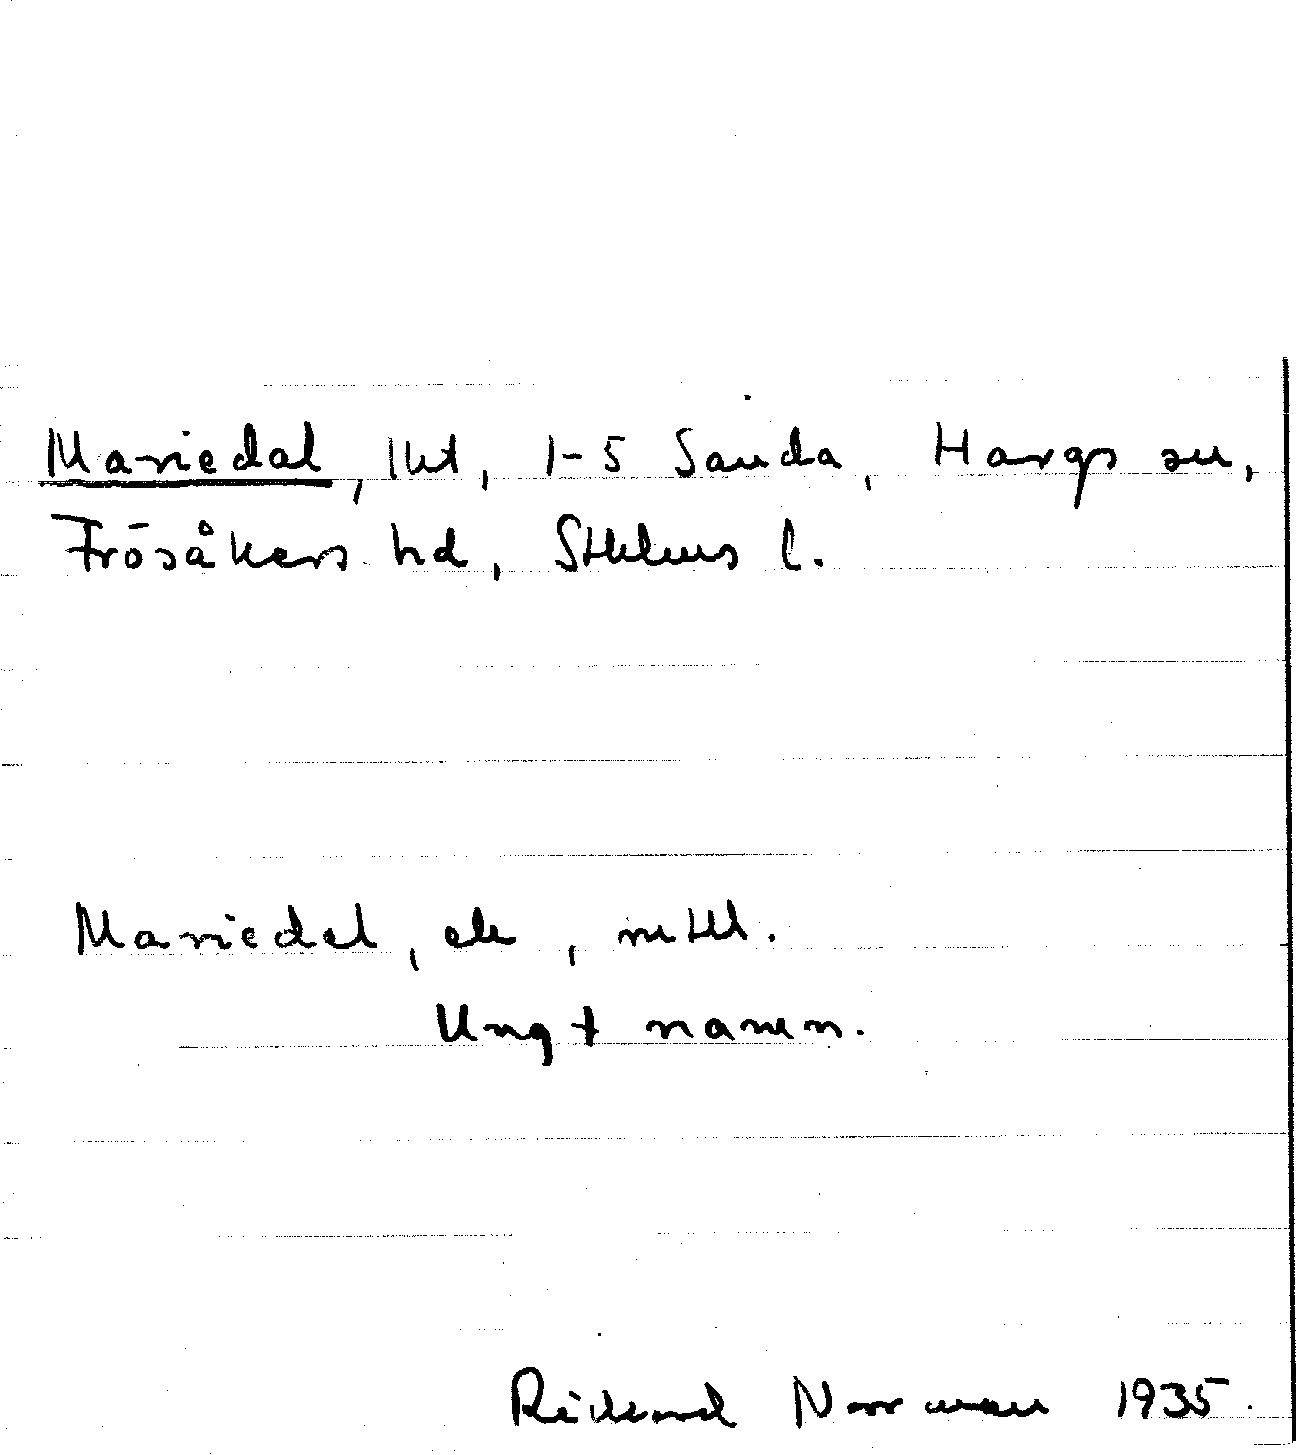 Mariedal, lht, 1-5 Sanda, Hargs sn,
Frösåkers hd, Sthlms l.
Mariedal, ek, nuttl.
Ungt namn.
Rickard Norrman 1935.